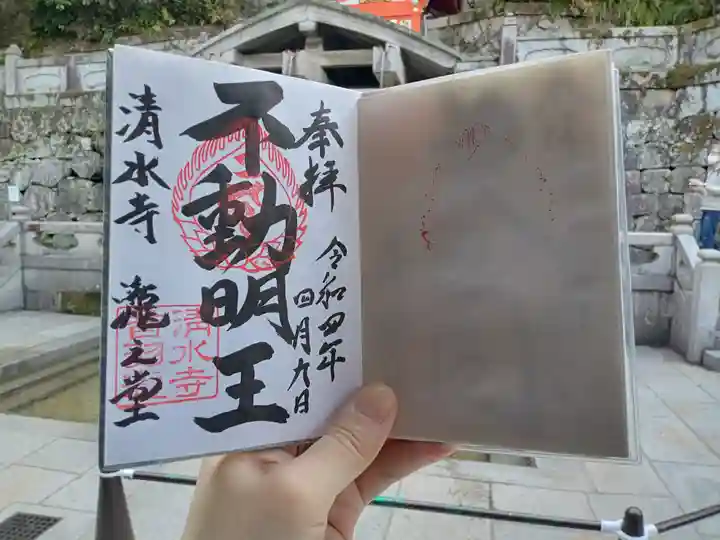 奉拝
令和四年
四月九日
不動明王
清水寺
瀧之堂
清水寺